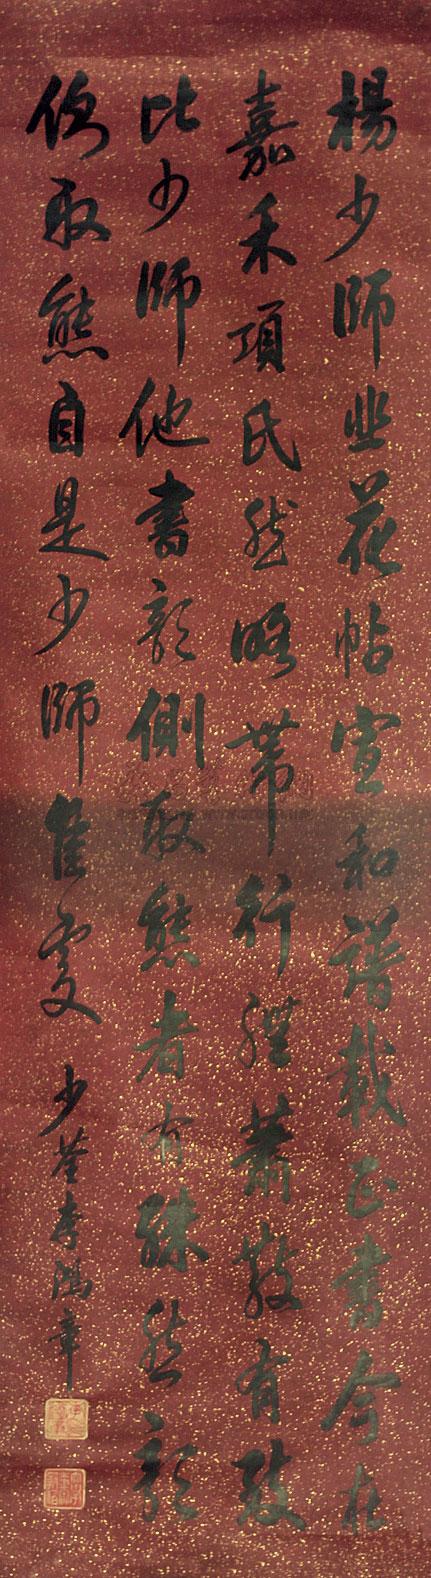 楊少師韭花帖宣和譜載正書今在
嘉禾項氏然略帶行體蕭散有致
比少師他書欹側取態者有殊然欹
側取態自是少師佳處 少荃李鴻章